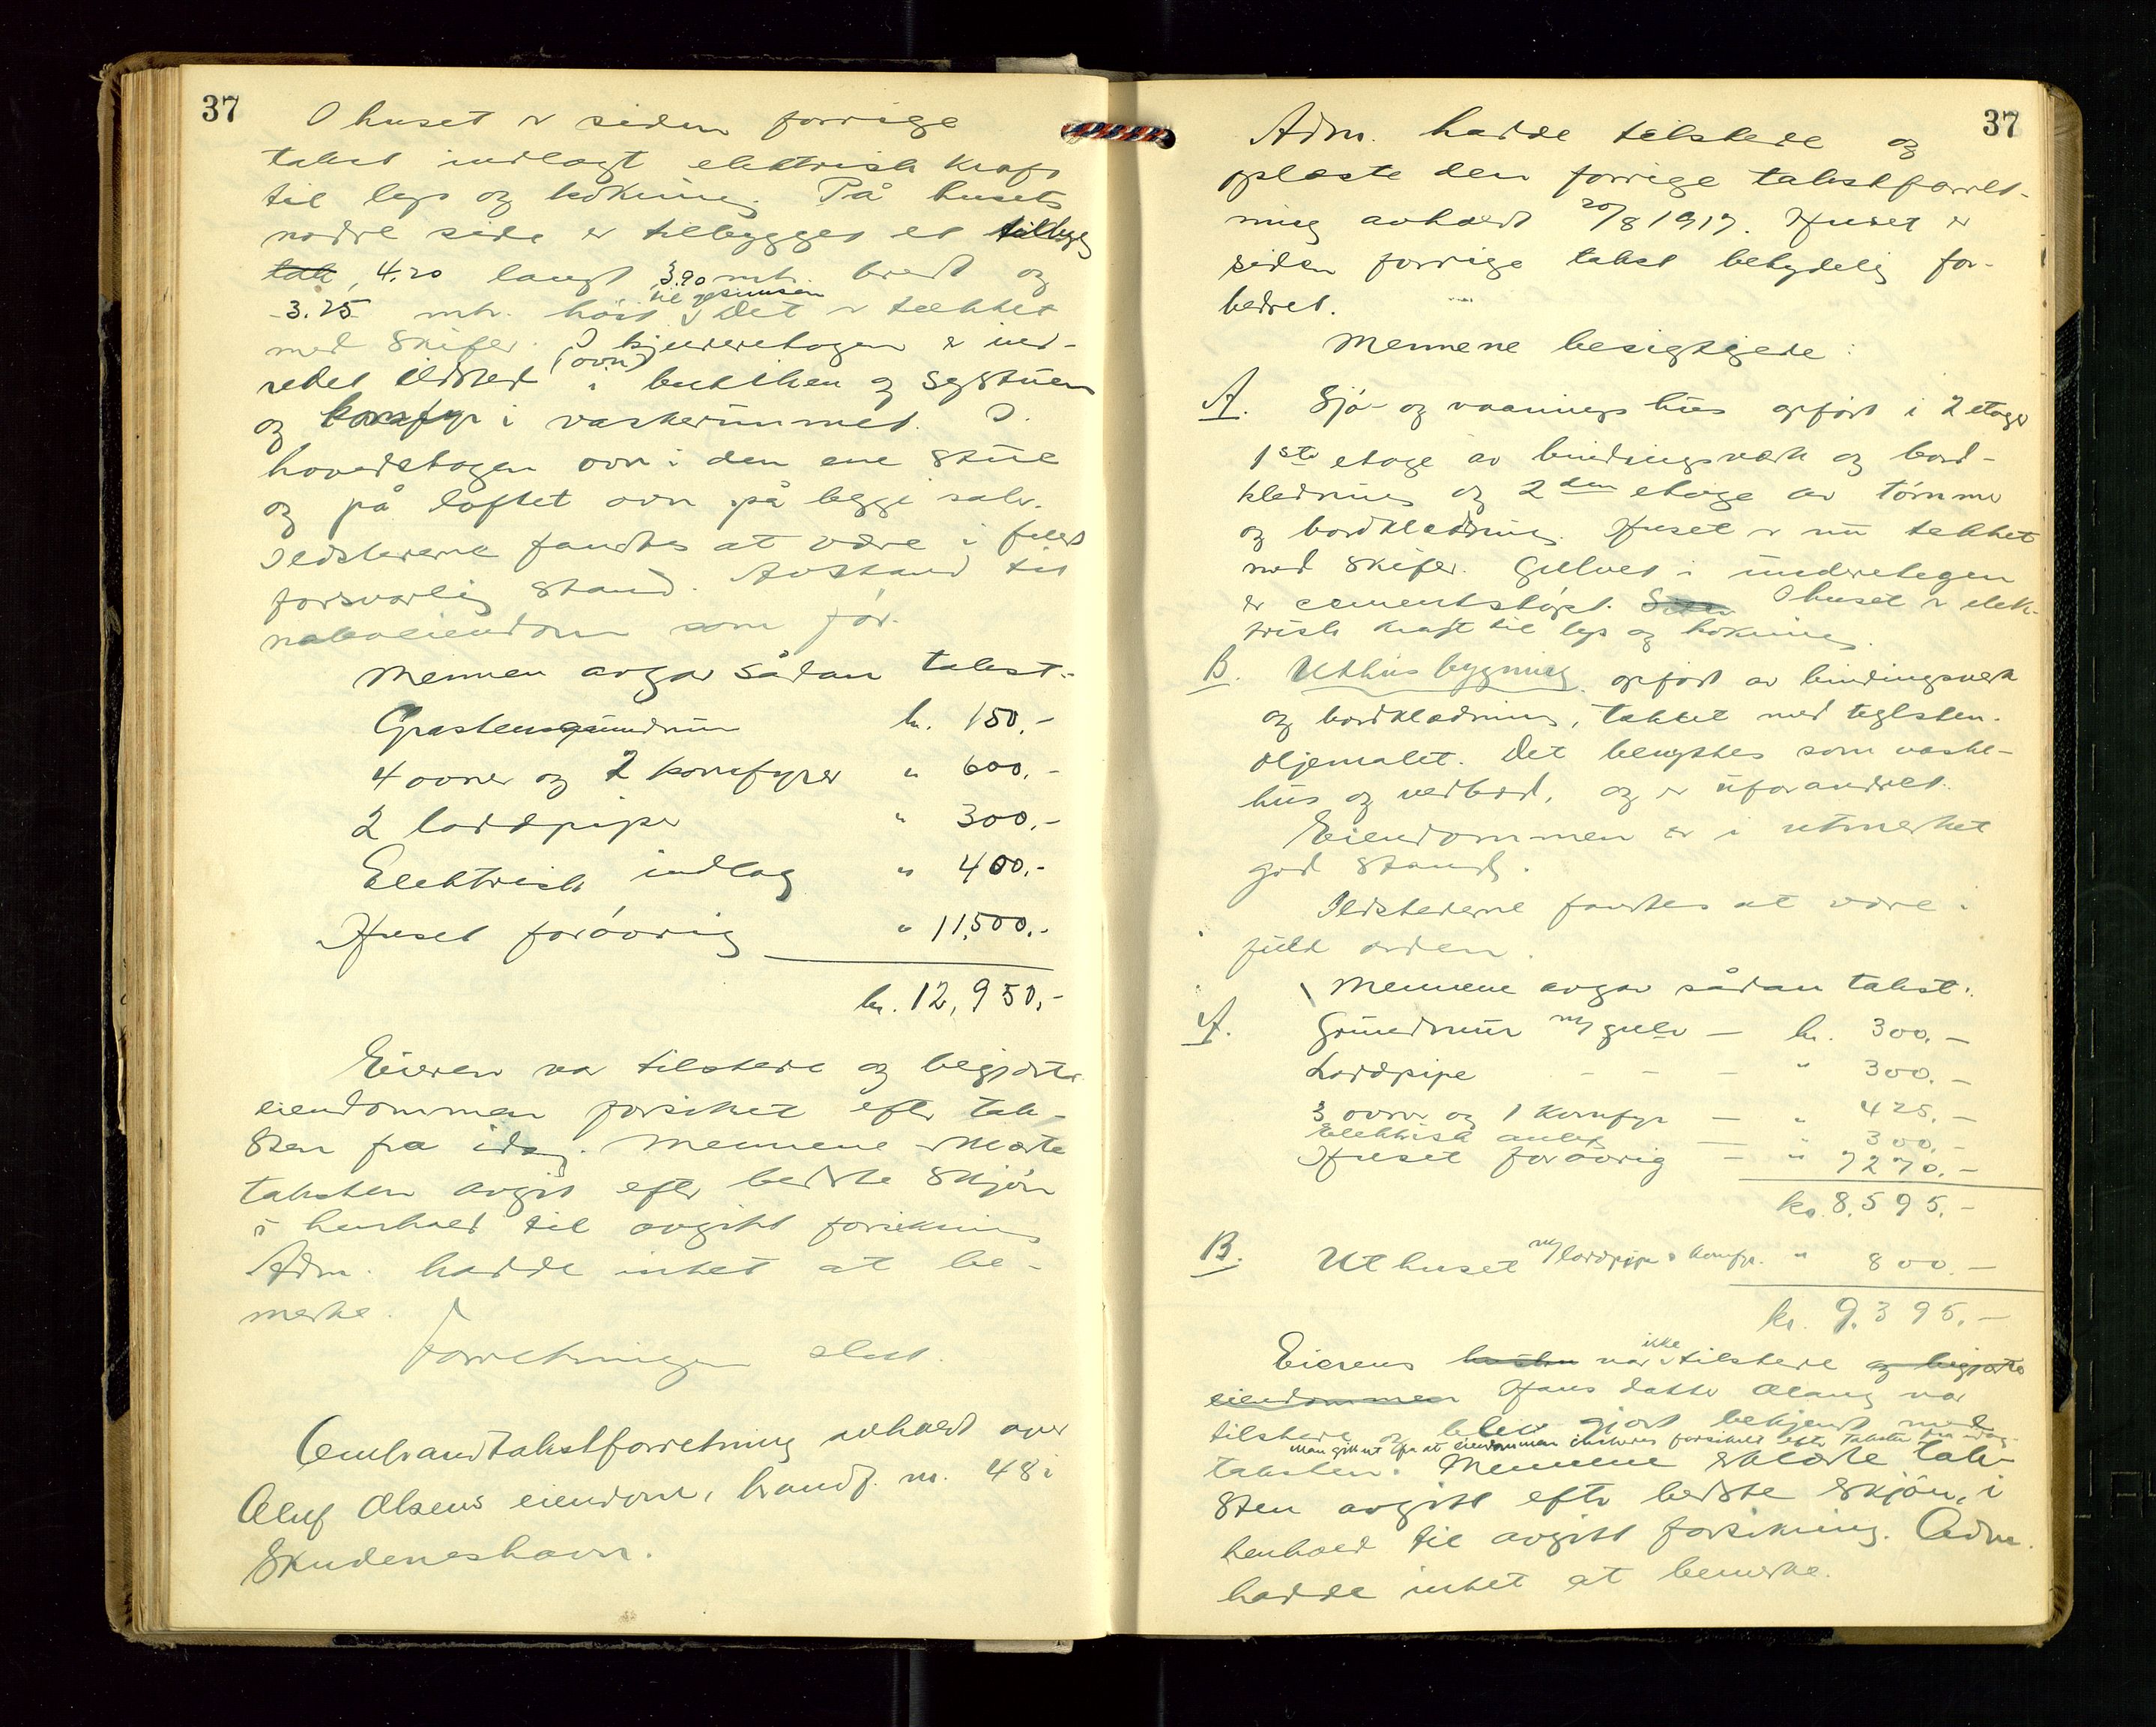 37
I huset er siden forrige
takst indlagt elektrisk kraft
til lys og kokning. På husets
nordre side er tilbygget et tilbygg
tak, 4.20 langt, 3.90 mtr. bredt og
3.25 mtr. höit til gesimsen Det er tækket
med Skifer. I kjælderetagen er ind-
redet ildsted (ovn) i butikken og systuen
og komfyr i vaskerummet. I
hovedetagen ovn i den ene stue
og på loftet ovn på begge saler.
Ildstederne fandtes at være i fuldt
forsvarlig stand. Avstand til
naboeiendom som för.
Mennene avgav sådan takst:
Gråstensgrundmur kr. 150.-
4 ovner og 2 komfyrer " 600.-
2 loddpiper " 300.-
Elektrisk indlag " 400.-
Huset foröovrig " 11,500.-
kr. 12,950.-
Eieren var tilstede og begjærte
eiendommen forsikret efter tak-
sten fra idag. Mennene erklærte
taksten avgit efter bedste skjön
i henhold til avgitt forsikring
Adm. hadde intet at be-
merke.
Forretningen slutt.
Ombrandtakstforretning avholdt over
Oluf Olsens eiendom, brandf. nr. 48 i
Skudeneshavn.
37
Adm. hadde tilstede og
oplæste den forrige takstforret-
ning avholdt 20/8 1917. Huset er
siden forrige takst betydelig for-
bedret.
Mennene besigtigede:
A. Sjö- og vaaningshus opfört i 2 etager
1ste etage av bindingsverk og bord-
klædning og 2den etage av tömmer
og bordklædning. Huset er nu tækket
med Skifer. Gulvet i underetagen
er cementstöpt. I huset er elek-
trisk kraft til lys og kokning
B. Uthusbygning opfört av bindingsverk
og bordklædning, tækket med teglsten.
oljemalet. Det benyttes som vaske-
hus og vedbod, og er uforandret.
Eiendommen er i utmerket
god stand.
Ildstederne fandtes at være i
fuld orden.
Mennene avgav sådan takst:
A. Grundmur m/ gulv - kr. 300.-
Loddpipe - - - " 300.-
3 ovner og 1 komfyr - " 425.-
Elektrisk anleg - " 300.-
Huset foröovrig - " 7270.-
kr. 8.595.-
B. Uthuset m/ loddpipe & komfyr. " 800.-
kr. 9.395.-
Eierens hustru var ikke tilstede og begjærte
eiendommen Hans datter Olaug var
tilstede og blev gjort bekjendt med
man gik ut fra at eiendommen önskes forsikret efter taksten fra idag.
taksten. Mennene erklærte tak-
sten avgitt efter bedste skjön, i
henhold til avgitt forsikring. Adm.
hadde intet at bemerke.